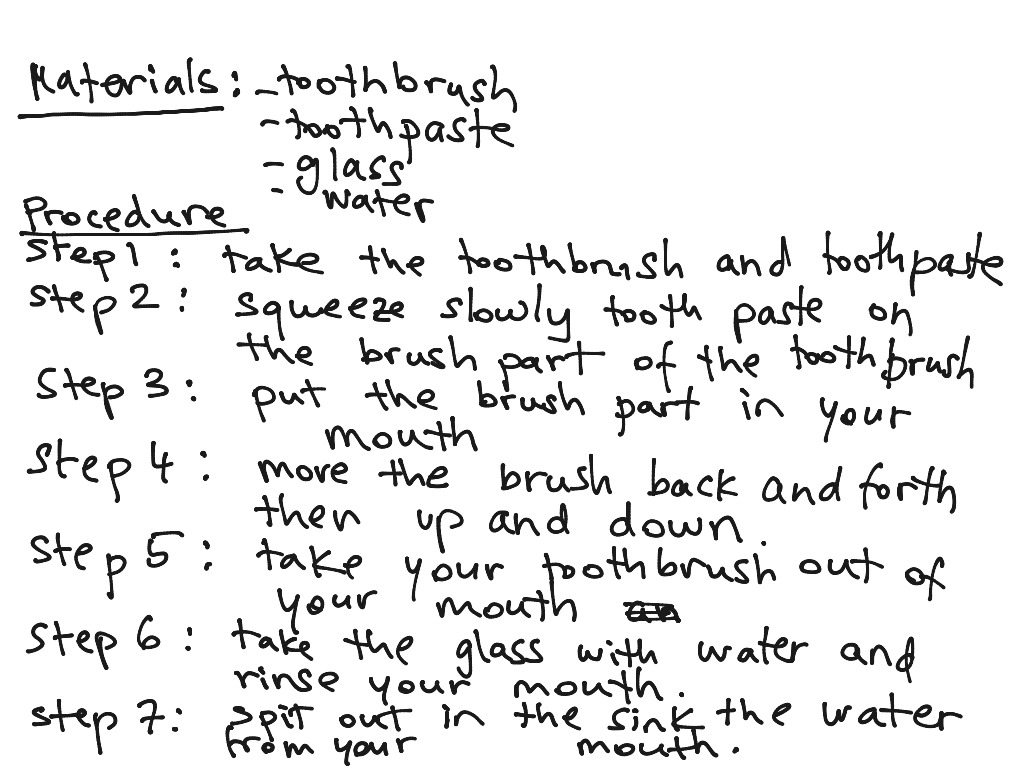 Materials: - toothbrush
- toothpaste
- glass
- water
Procedure
Step 1: take the toothbrush and toothpaste
Step 2: squeeze slowly tooth paste on
the brush part of the toothbrush
Step 3: put the brush part in your
mouth
Step 4: move the brush back and forth
then up and down.
Step 5: take your toothbrush out of
your mouth
Step 6: take the glass with water and
rinse your mouth.
Step 7: spit out in the sink the water
from your mouth.